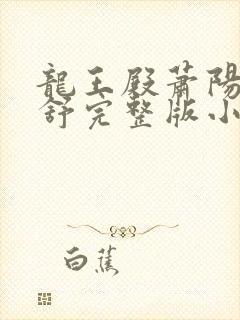 龍王殿蕭陽
舒完整版小
白蕉